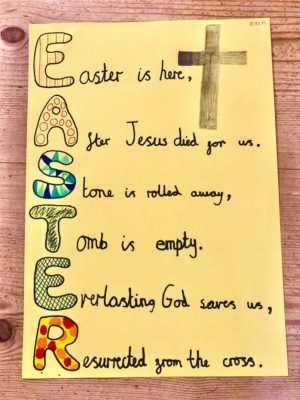 Easter is here,
After Jesus died for us.
Stone is rolled away,
Tomb is empty.
Everlasting God saves us,
Resurrected from the cross.